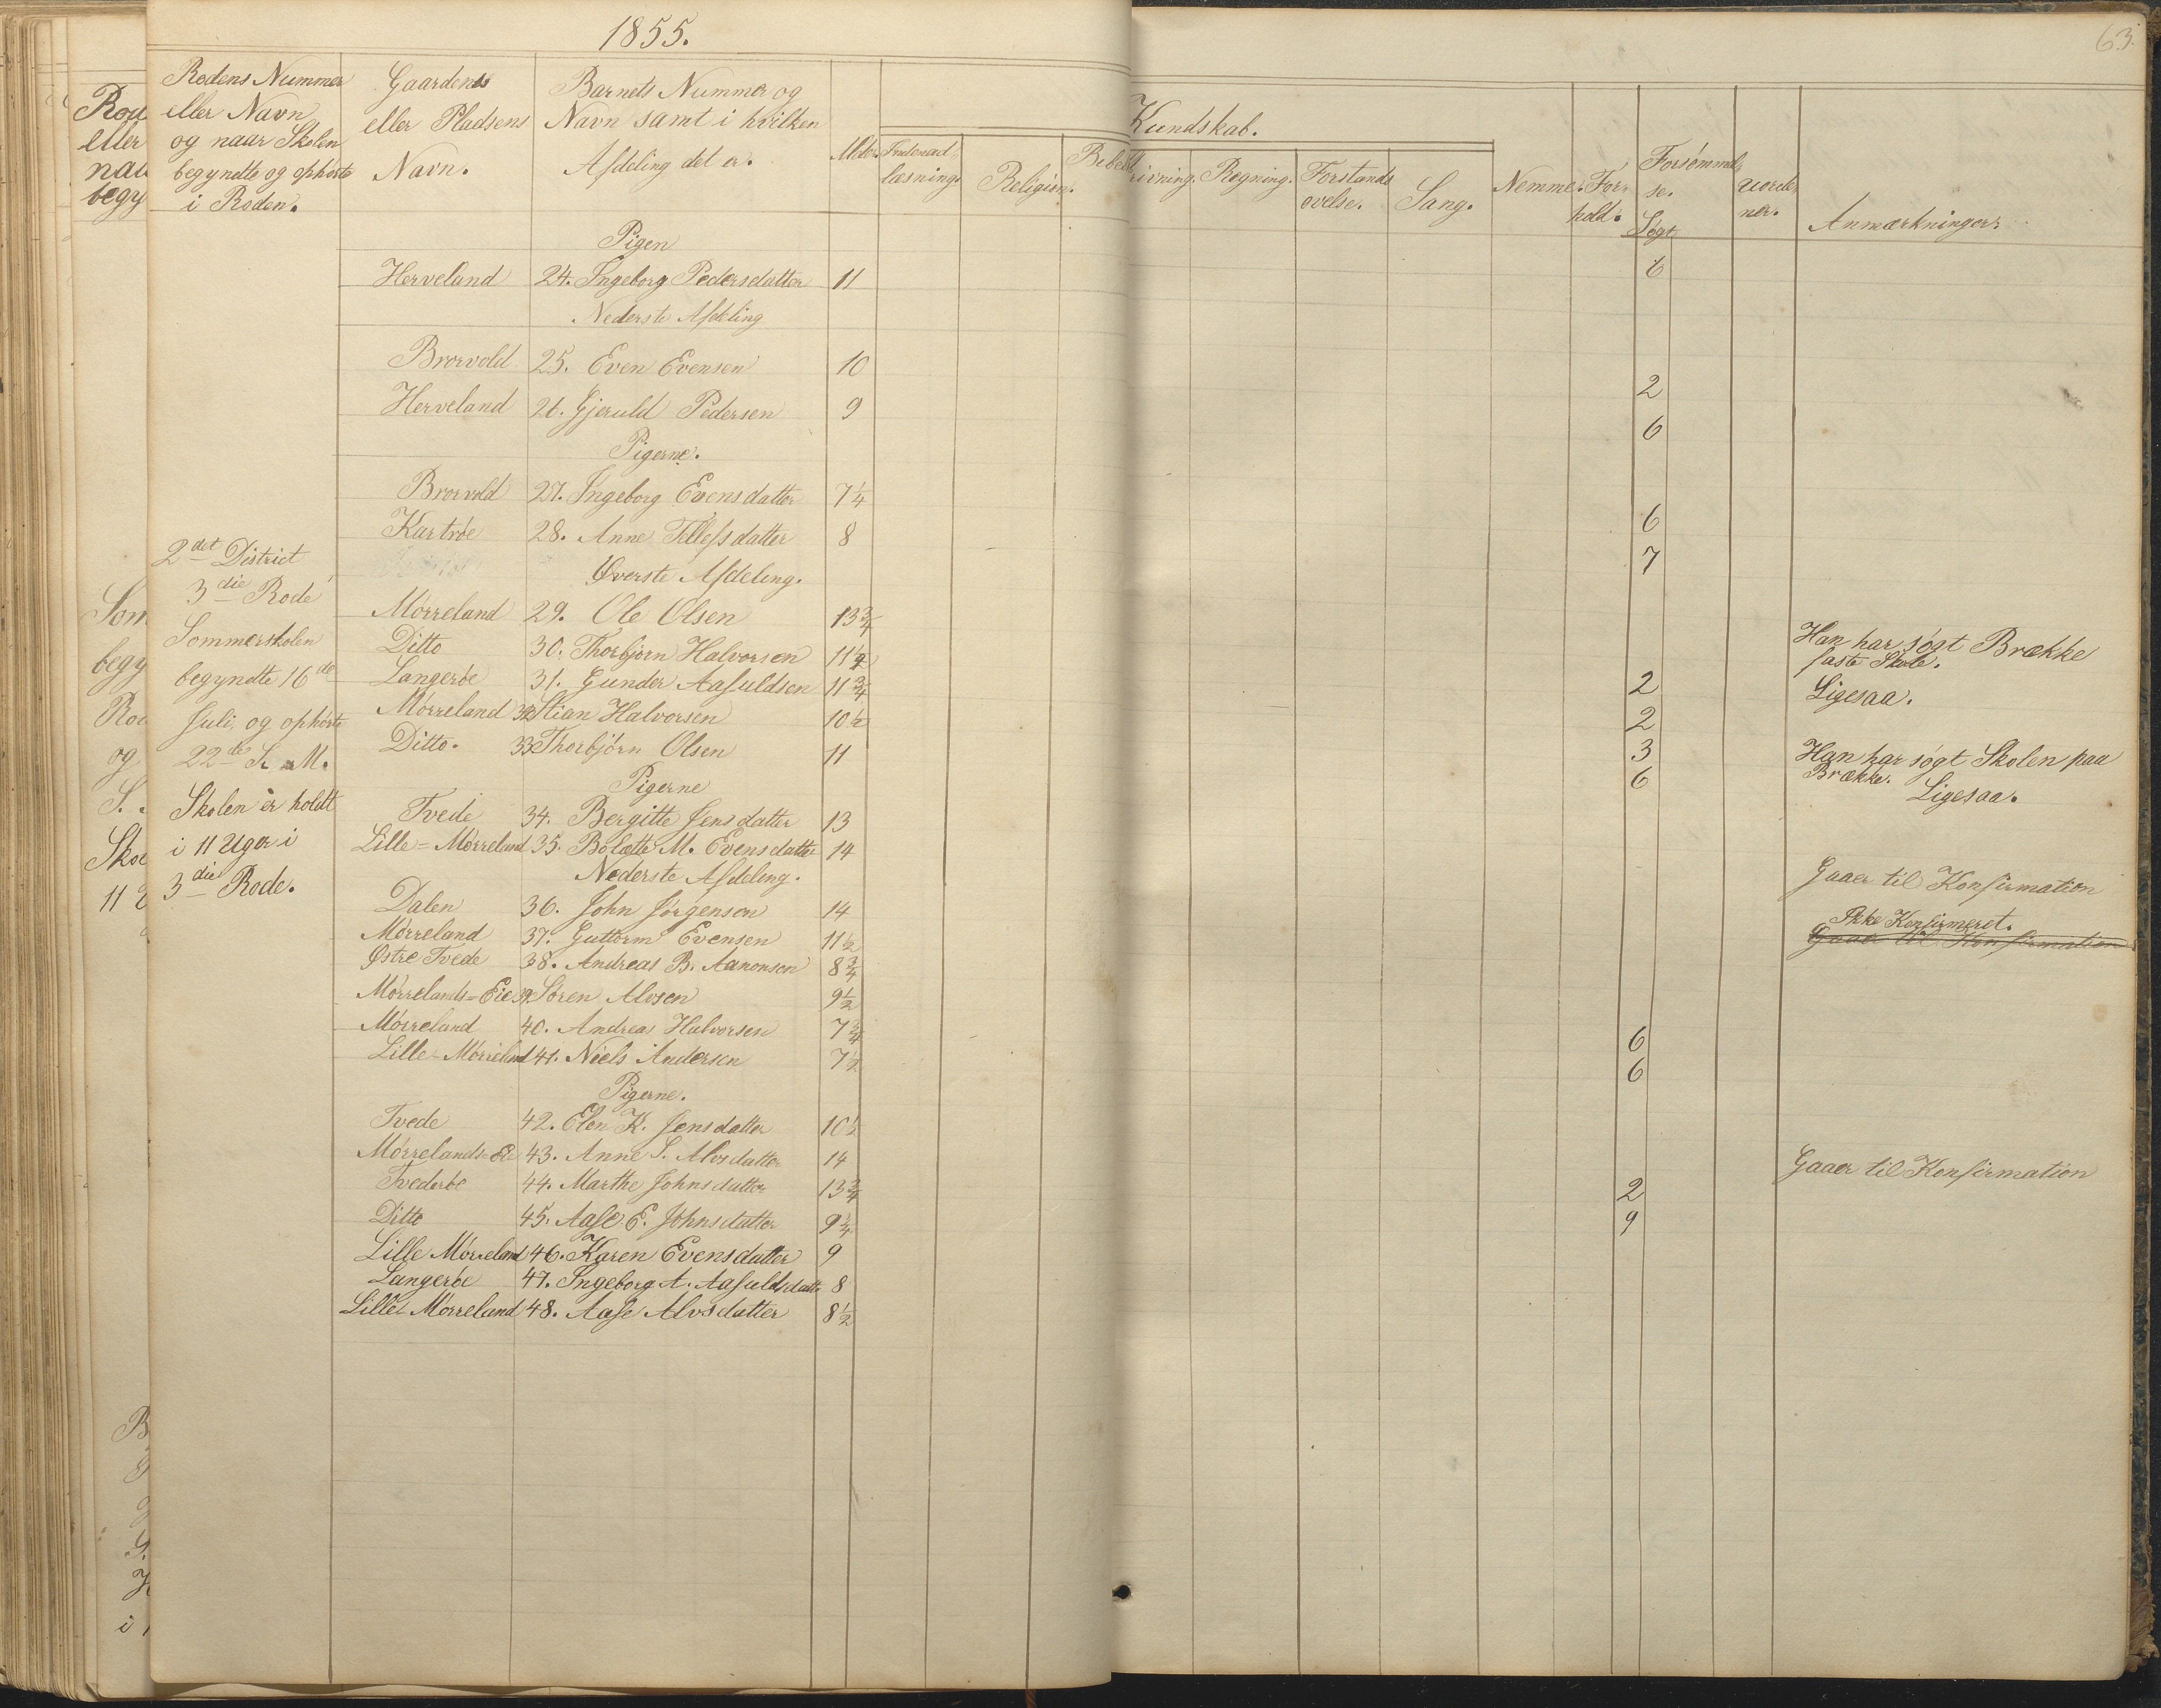 1855.
63.
Rodens Nummer
eller Navn
og naar Skolen
begyndte og ophørte
i Roden.
Gaardens
eller Pladsens
Navn.
Barnets Nummer og
Navn samt i hvilken
Afdeling det er.
Alder.
Kundskab.
Indenad-
læsning.
Religion.
Regning.
Forstands
øvelse.
Sang.
Nemme.
For-
hold.
Forsømmel-
se.
Søgt
Uorde-
ner.
Anmærkninger.
Pigen
Herveland 24. Ingeborg Pedersdatter 11 6
Nederste Afdeling
Brorvold 25. Even Evensen 10 2
Herveland 26. Gjeruld Pedersen 9 6
Pigerne.
Brorvold 27. Ingeborg Evensdatter 7 1/4 6
Kartrøe 28. Anne Tellefsdatter 8 7
2det District
3die Rode
Sommerskolen
begyndte 16de
Juli, og ophørte
22de S. M.
Skolen er holdt
i 11 Uger i
3die Rode.
Øverste Afdeling.
Mørreland 29. Ole Olsen 13 3/4 Han har søgt Brække
faste Skole.
Ditto 30. Thorbjørn Halvorsen 11 1/2 2 Ligesaa.
Langerøe 31. Gunder Aasuldsen 11 3/4 2
Mørreland 32. Stian Halvorsen 10 1/2 3 Han har søgt Skolen paa
Brække.
Ditto. 33. Thorbjørn Olsen 11 6 Ligesaa.
Pigerne
Tvede 34. Bergitte Jensdatter 13
Lille-Mørreland 35. Bolette M. Evensdatter 14 Gaaer til Konfirmation
Nederste Afdeling.
Dalen 36. John Jørgensen 14 Ikke Konfirmeret.
Gaaer til Konfirmation
Mørreland 37. Guttorm Evensen 11 1/2
Østre Tvede 38. Andreas B. Aanonsen 8 3/4
Mørrelands-Eie 39. Søren Alvsen 9 1/2
Mørreland 40. Andreas Halvorsen 7 3/4 6
Lille-Mørreland 41. Niels Andersen 7 1/2 6
Pigerne.
Tvede 42. Elen K. Jensdatter 10 1/2
Mørrelands-Eie 43. Anne S. Alvsdatter 14 Gaaer til Konfirmation
Tvederøe 44. Marthe Johnsdatter 13 3/4 2
Ditto 45. Aase E. Johnsdatter 9 1/4 9
Lille Mørreland 46. Karen Evensdatter 9
Langerøe 47. Ingeborg A. Aasuldsdatter 8
Lille Mørreland 48. Aase Alvsdatter 8 1/2